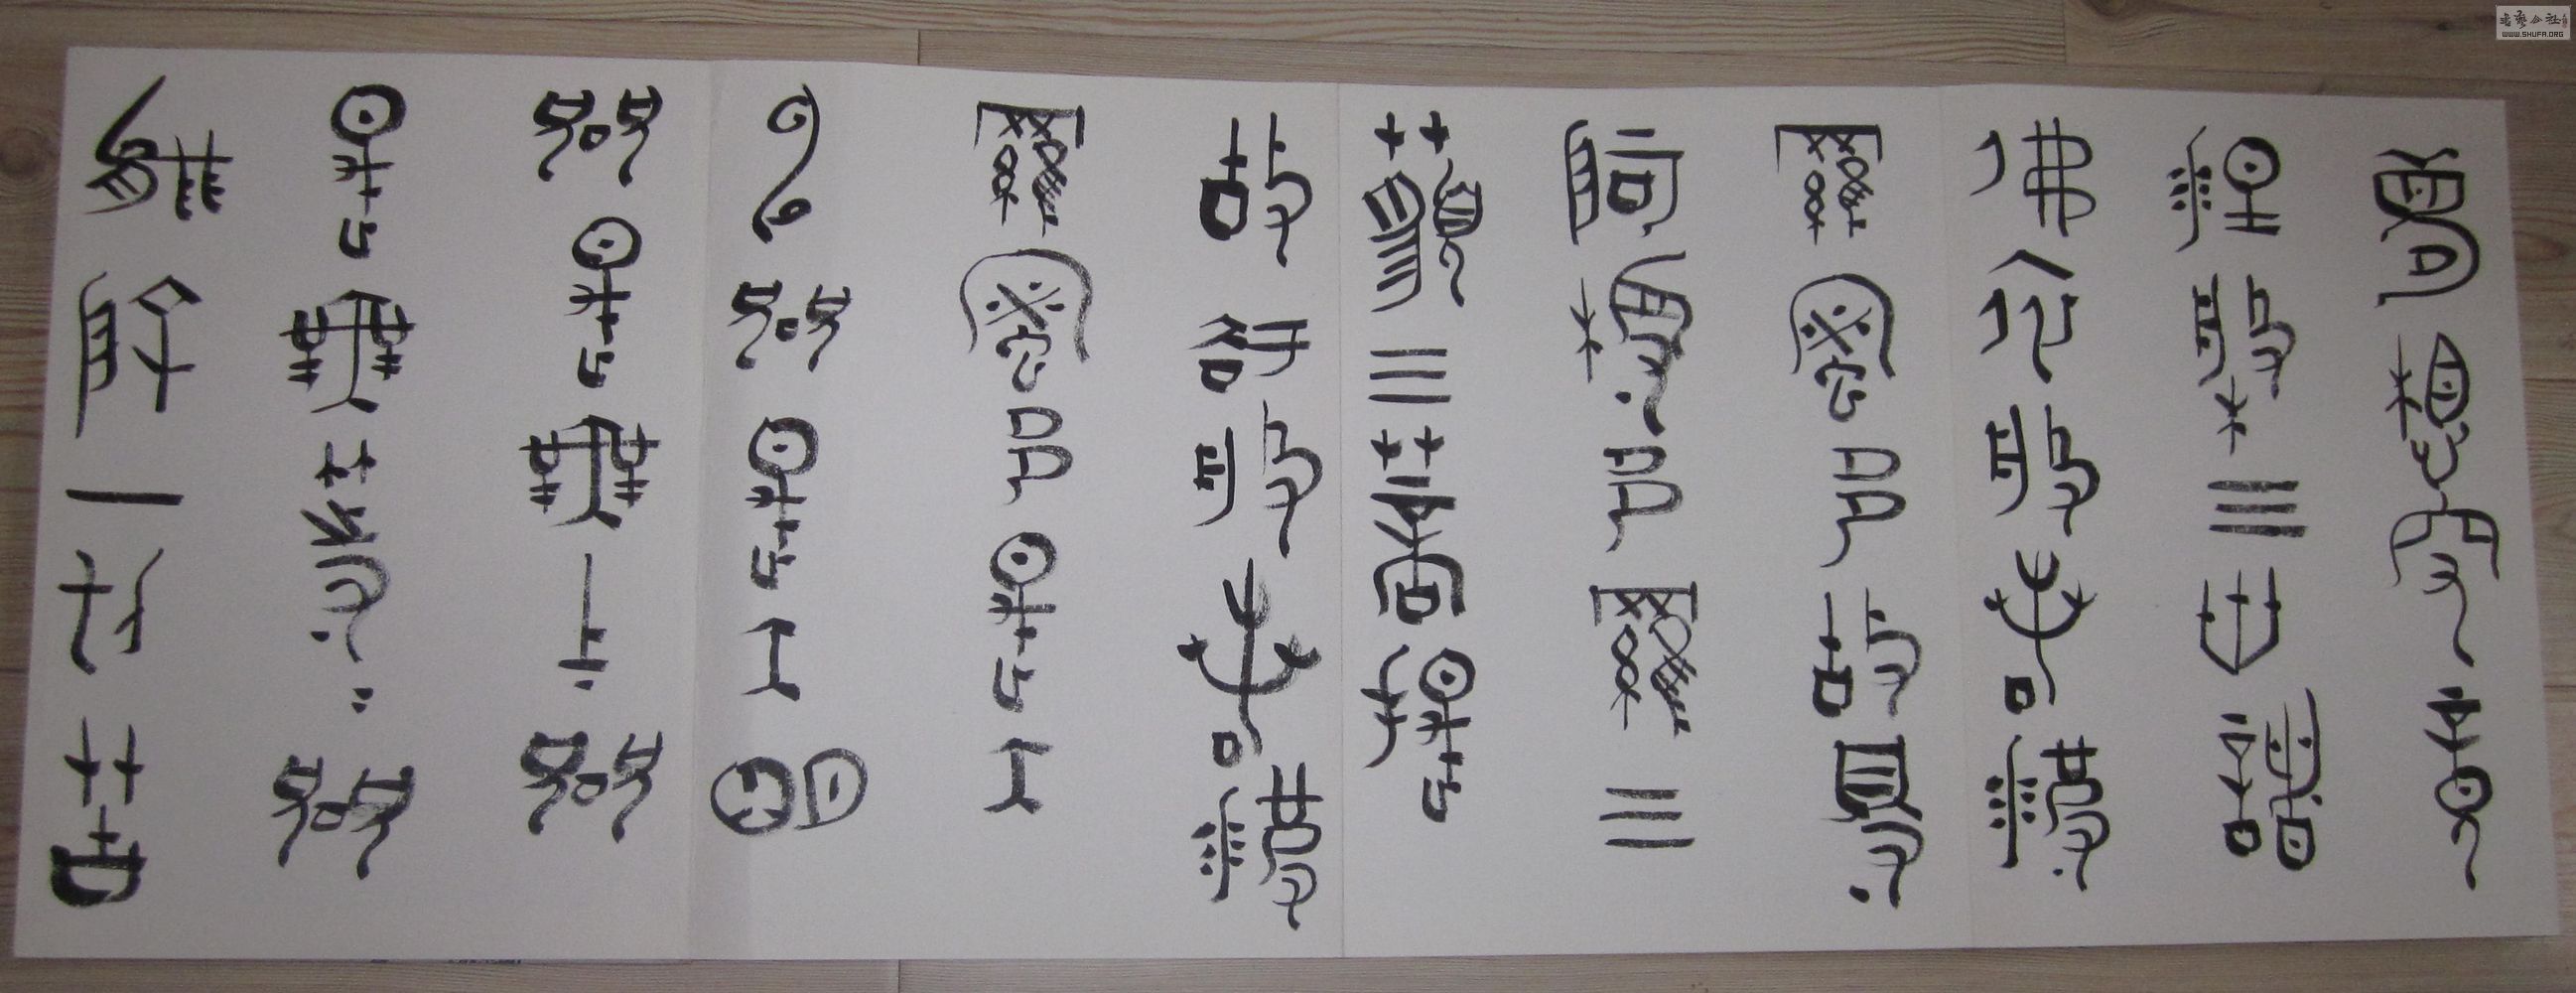 夢想究竟
涅槃三世諸
佛依般若波
羅蜜多故得
阿耨多羅三
藐三菩提
故知般若波
羅蜜多是大
神咒是大明
咒是無上咒
是無等等咒
能除一切苦
書藝公社
WWW.SHUFA.ORG